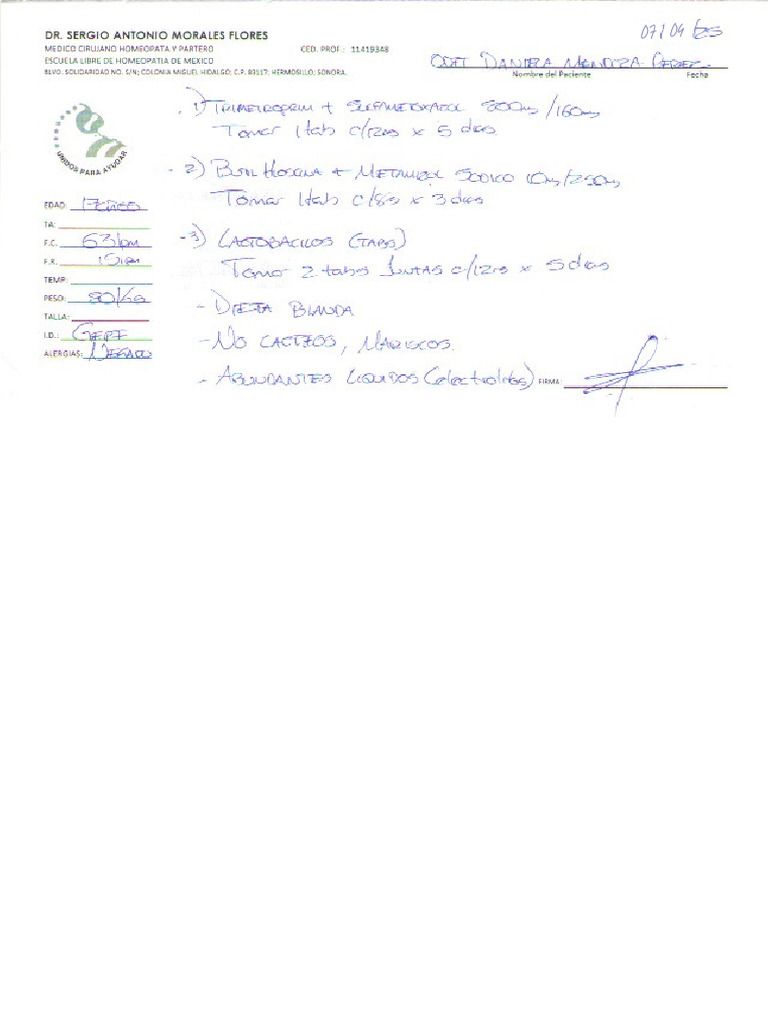 DR. SERGIO ANTONIO MORALES FLORES
MEDICO CIRUJANO HOMEOPATA Y PARTERO CED. PROF.: 11419348
ESCUELA LIBRE DE HOMEOPATIA DE MEXICO
BLVD. SOLIDARIDAD NO. S/N; COLONIA MIGUEL HIDALGO; C.P. 83117; HERMOSILLO; SONORA.
07/04/25
Daniela Mendoza Perez
Nombre del Paciente Fecha
UNIDOS PARA AYUDAR
1) Trimetroprim + Sulfametoxazol 800mg/160mg
Tomar 1 tab c/12hs x 5 dias
2) Butil Hioscina + Metamizol Sodico 10mg/250mg
Tomar 1 tab c/8hs x 3 dias
3) Lactobacilos (tabs)
Tomar 2 tabs Juntas c/12hs x 5 dias
- Dieta Blanda
- No Lacteos, Mariscos.
- Abundantes Liquidos (electrolitos)
EDAD: 17 años
TA:
F.C. 63 lpm
F.R. 15 rpm
TEMP:
PESO: 80 kg
TALLA:
I.D.: GEPI
ALERGIAS: Negado
FIRMA: